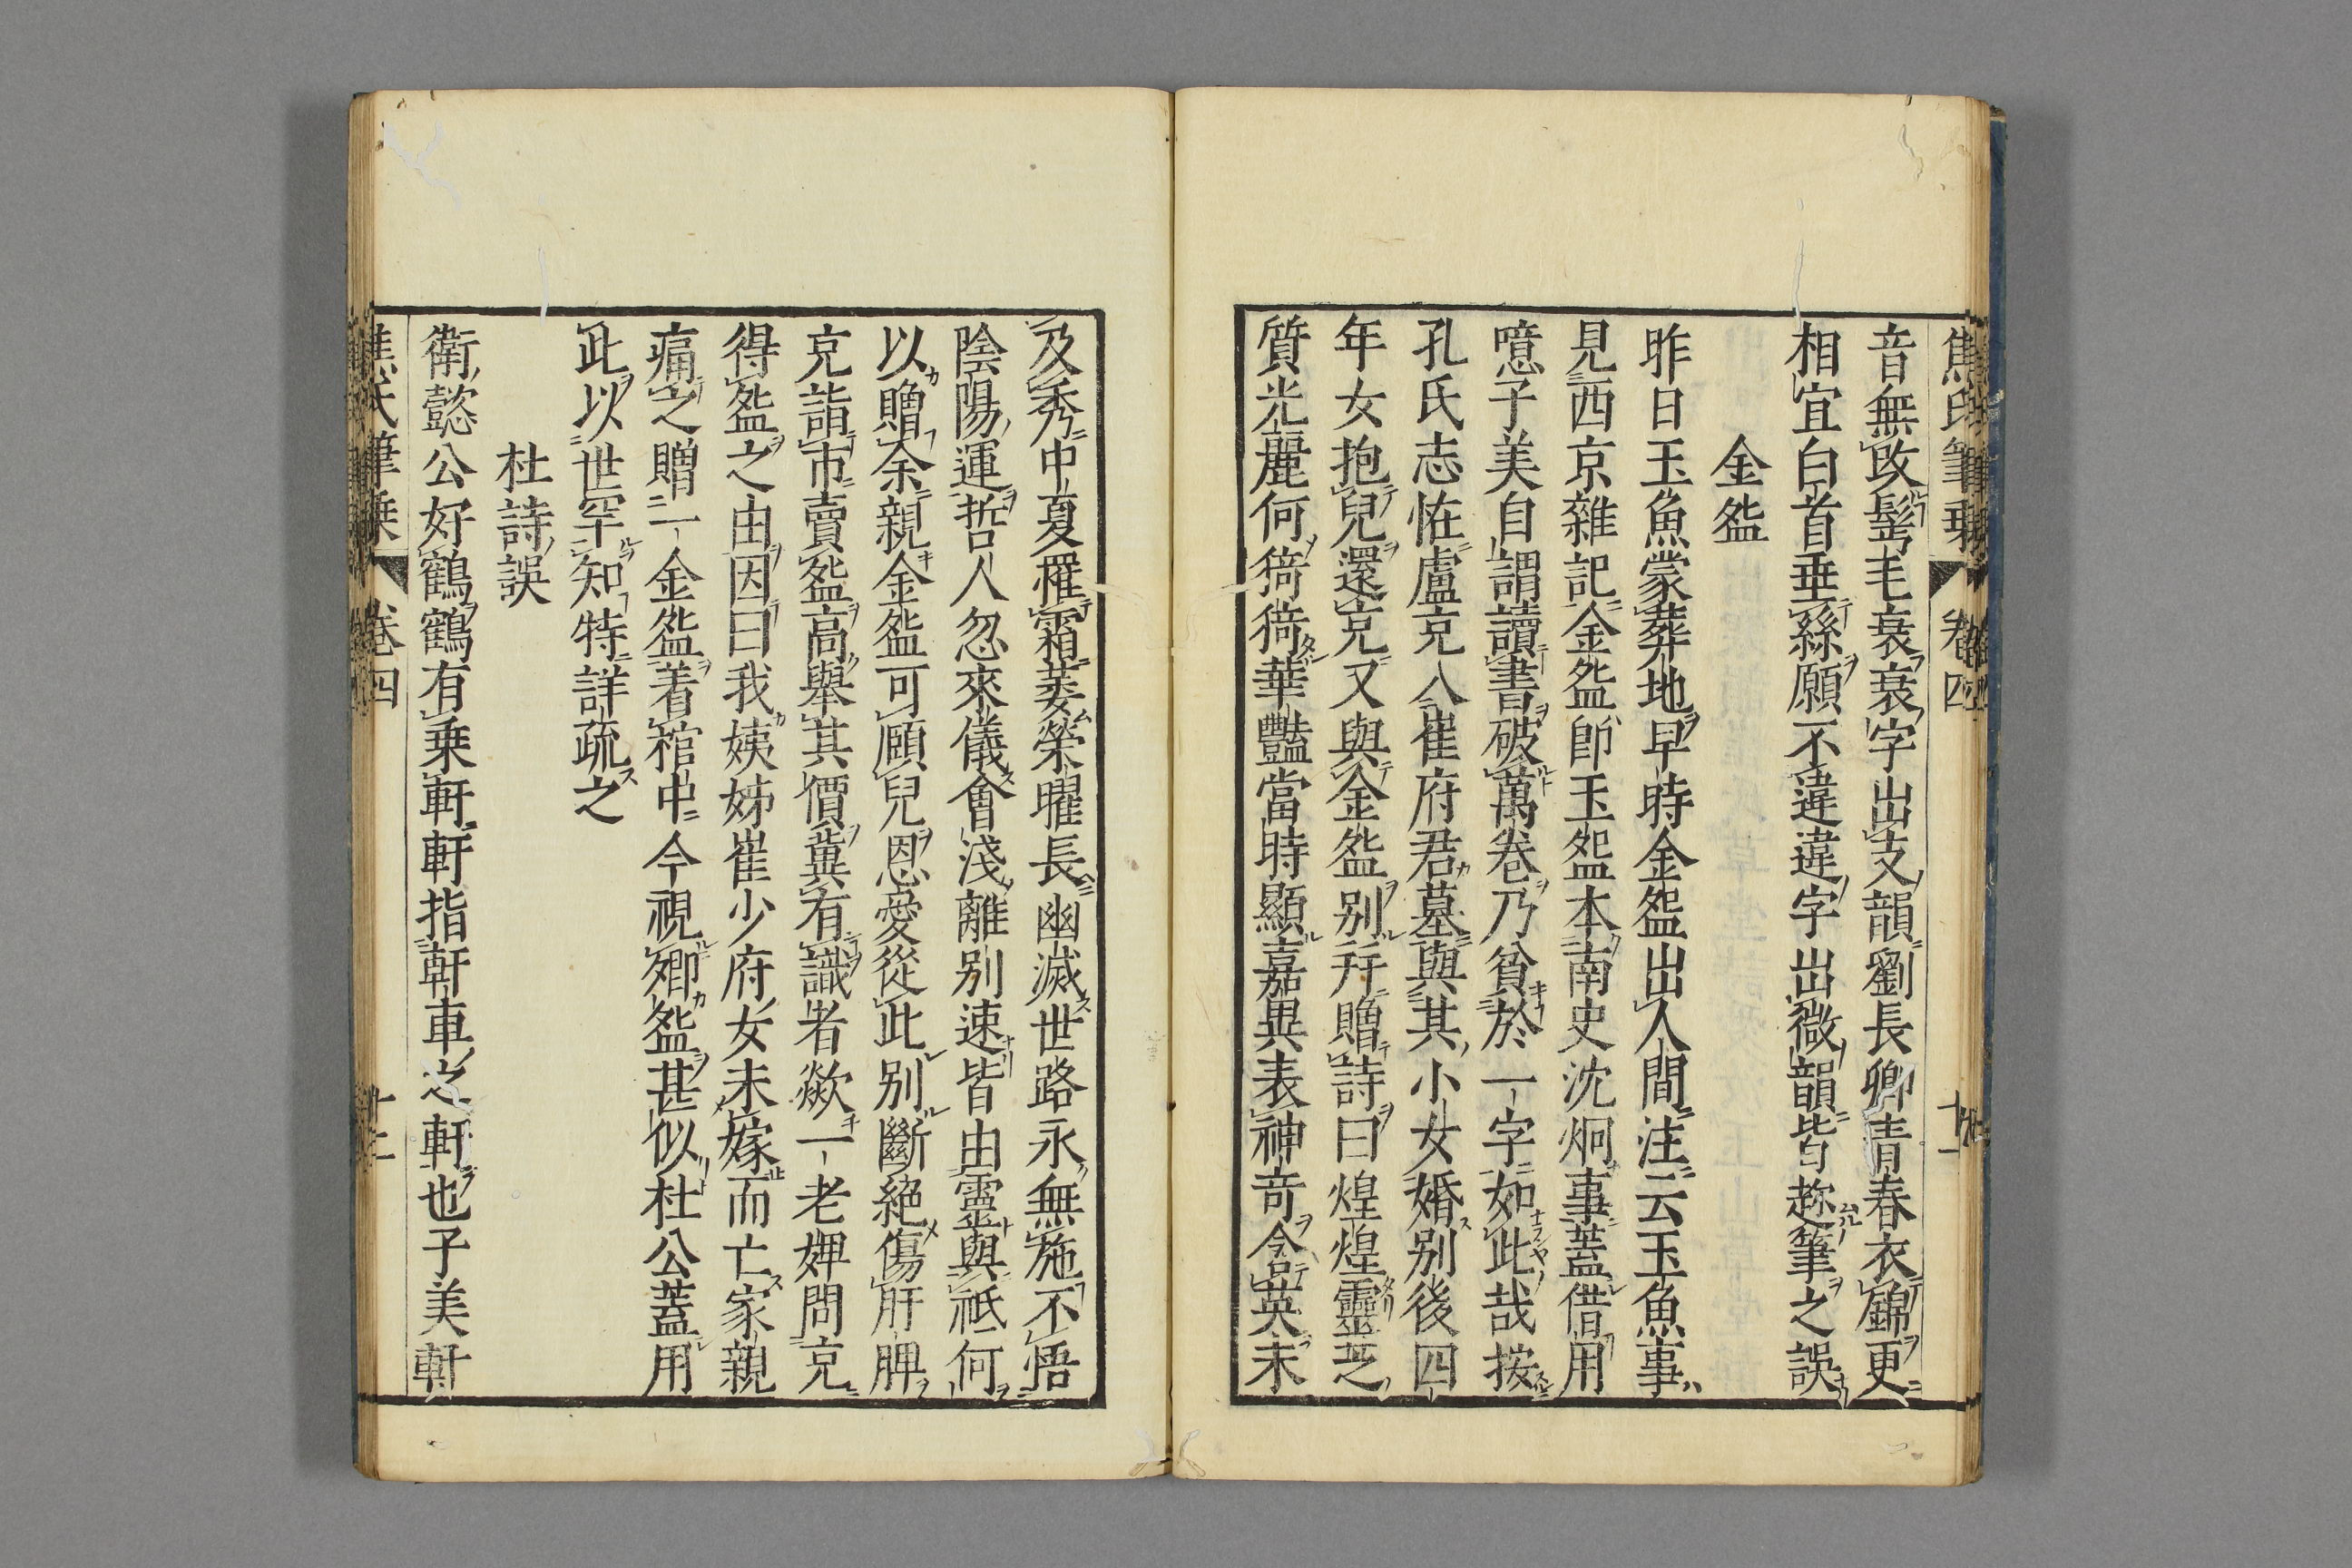 焦氏筆乗 卷四
音無改鬂毛衰衰字出支韻劉長卿青春衣錦更
相宜白首垂絲願不違違字出微韻皆趂筆之誤
金盌
昨日玉魚蒙葬地早時金盌出人間注云玉魚事
見西京雜記金盌卽玉盌本南史沈炯事蓋借用
噫子美自謂讀書破萬卷乃貧於一字如此哉按
孔氏志恠盧充入崔府君墓與其小女婚别後四
年女抱兒還充又與金盌别幷贈詩曰煌煌靈芝
質光麗何猗猗華豔當時顯嘉異表神竒含英未
及秀中夏罹霜萎榮曜長幽滅世路永無施不悟
陰陽運哲人忽來儀會淺離别速皆由靈與祇何
以贈余親金盌可頤兒恩愛從此别斷絶傷肝脾
充詣市賣盌高舉其價冀有識者歘一老婢問充
得盌之由因曰我姨姊崔少府女未嫁而亡家親
痛之贈一金盌着棺中今視卿盌甚似杜公蓋用
此以世罕知特詳疏之
杜詩誤
衛懿公好鶴鶴有乗軒軒指軒車之軒也子美軒
焦氏筆乗 卷四 十二